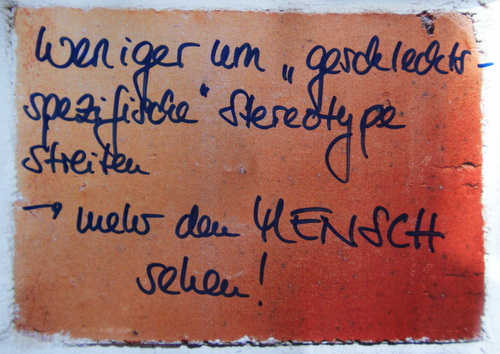 Weniger um „geschlechts-
spezifische" Stereotype
streiten
→ mehr den MENSCH
sehen!